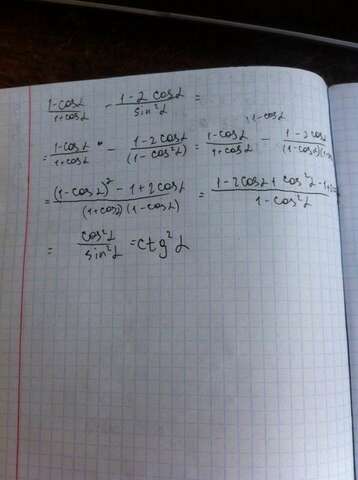 (1-cosα)/(1+cosα) - (1-2cosα)/(sin²α) =
1-cosα
= (1-cosα)/(1+cosα) - (1-2cosα)/((1-cos²α)) = (1-cosα)/(1+cosα) - (1-2cosα)/((1-cosα)(1+
= ((1-cosα)² - 1+2cosα)/((1+cosα)(1-cosα)) = (1-2cosα+cos²α-1+2cos)/(1-cos²α)
= (cos²α)/(sin²α) = ctg²α